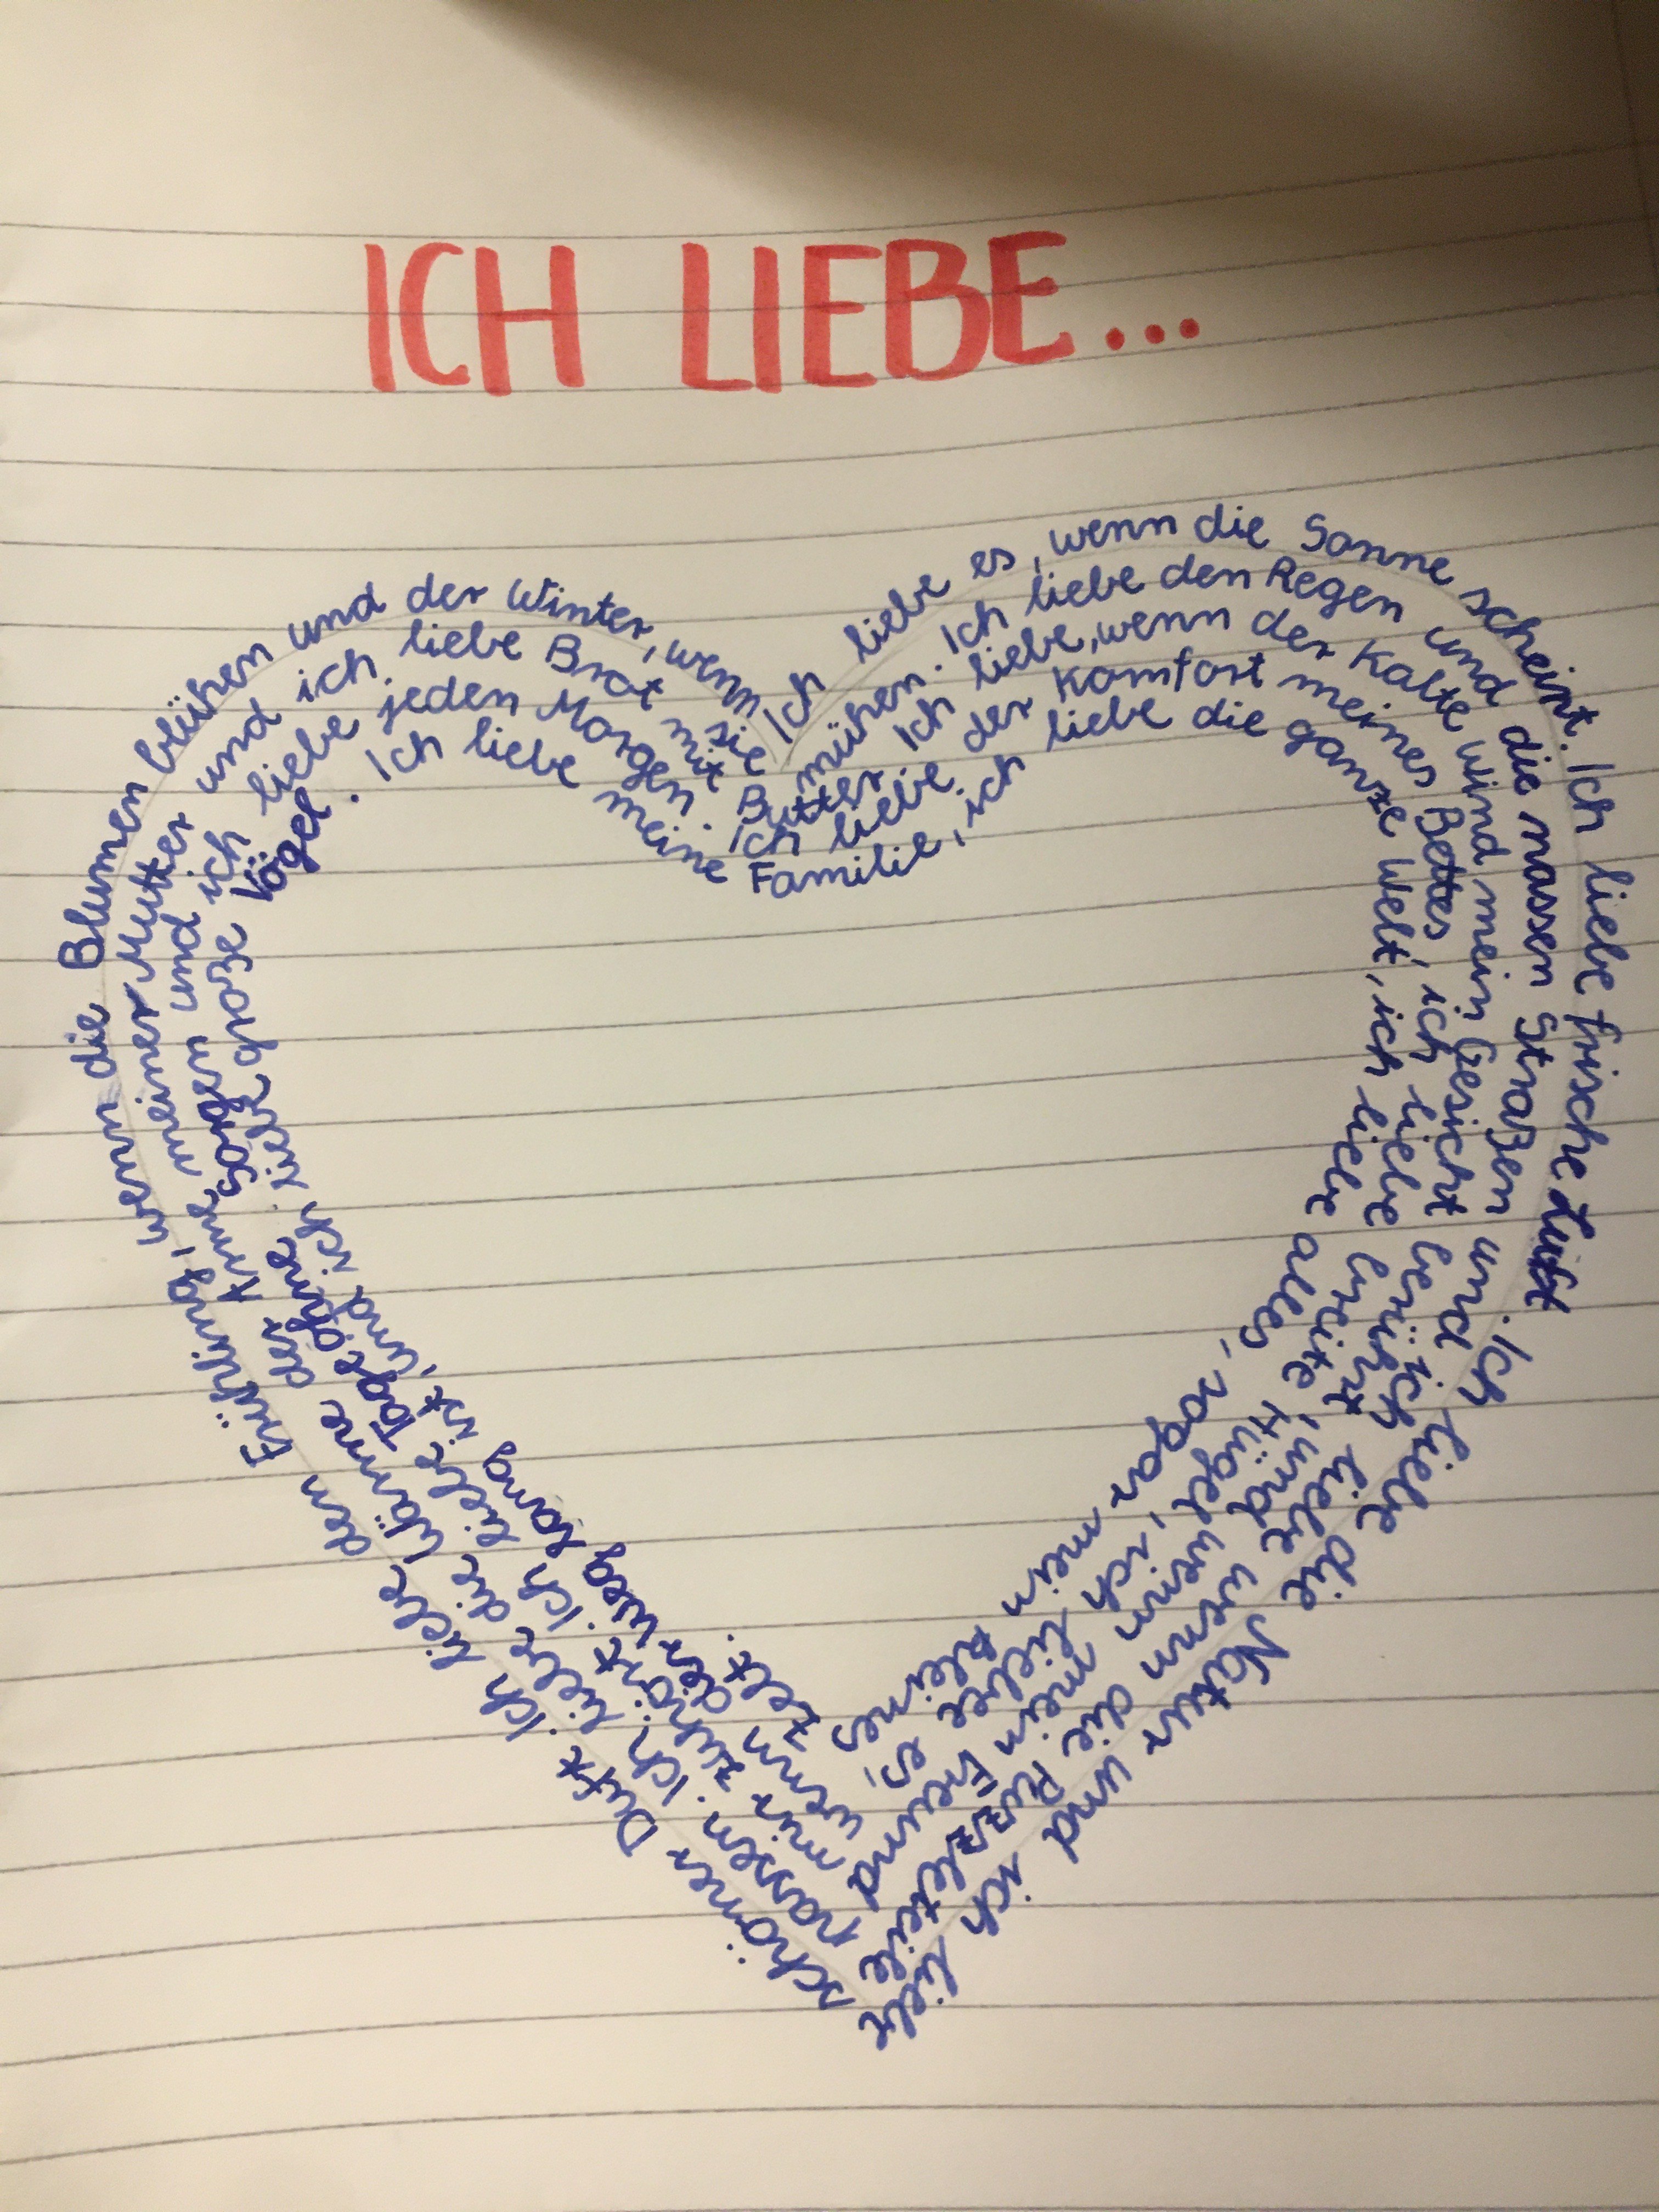 ICH LIEBE...
Ich liebe es, wenn die Sonne scheint. Ich liebe frische Luft. Ich liebe die Natur und ich liebe schöner Duft. Ich liebe dem Frühling, wenn die Blumen blühen und der Winter, wenn sie
mühen. Ich liebe den Regen und die nassen Straßen und ich liebe wenn die Puzzleteile passen. Ich liebe die Wärme der Arme meiner Mutter und ich liebe Brot mit Butter.
Ich liebe, wenn der Kalte wind mein Gesicht berührt, und wenn mein Freund mir zuhört. Ich liebe Tage ohne Sorgen und ich liebe jeden Morgen. Ich liebe
der Komfort meines Bettes, ich liebe breite Hügel, ich liebe es, wenn der weg lang ist, und ich liebe große Vögel. Ich liebe meine Familie, ich
liebe die ganze Welt, ich liebe alles, sogar mein kleines zelt.